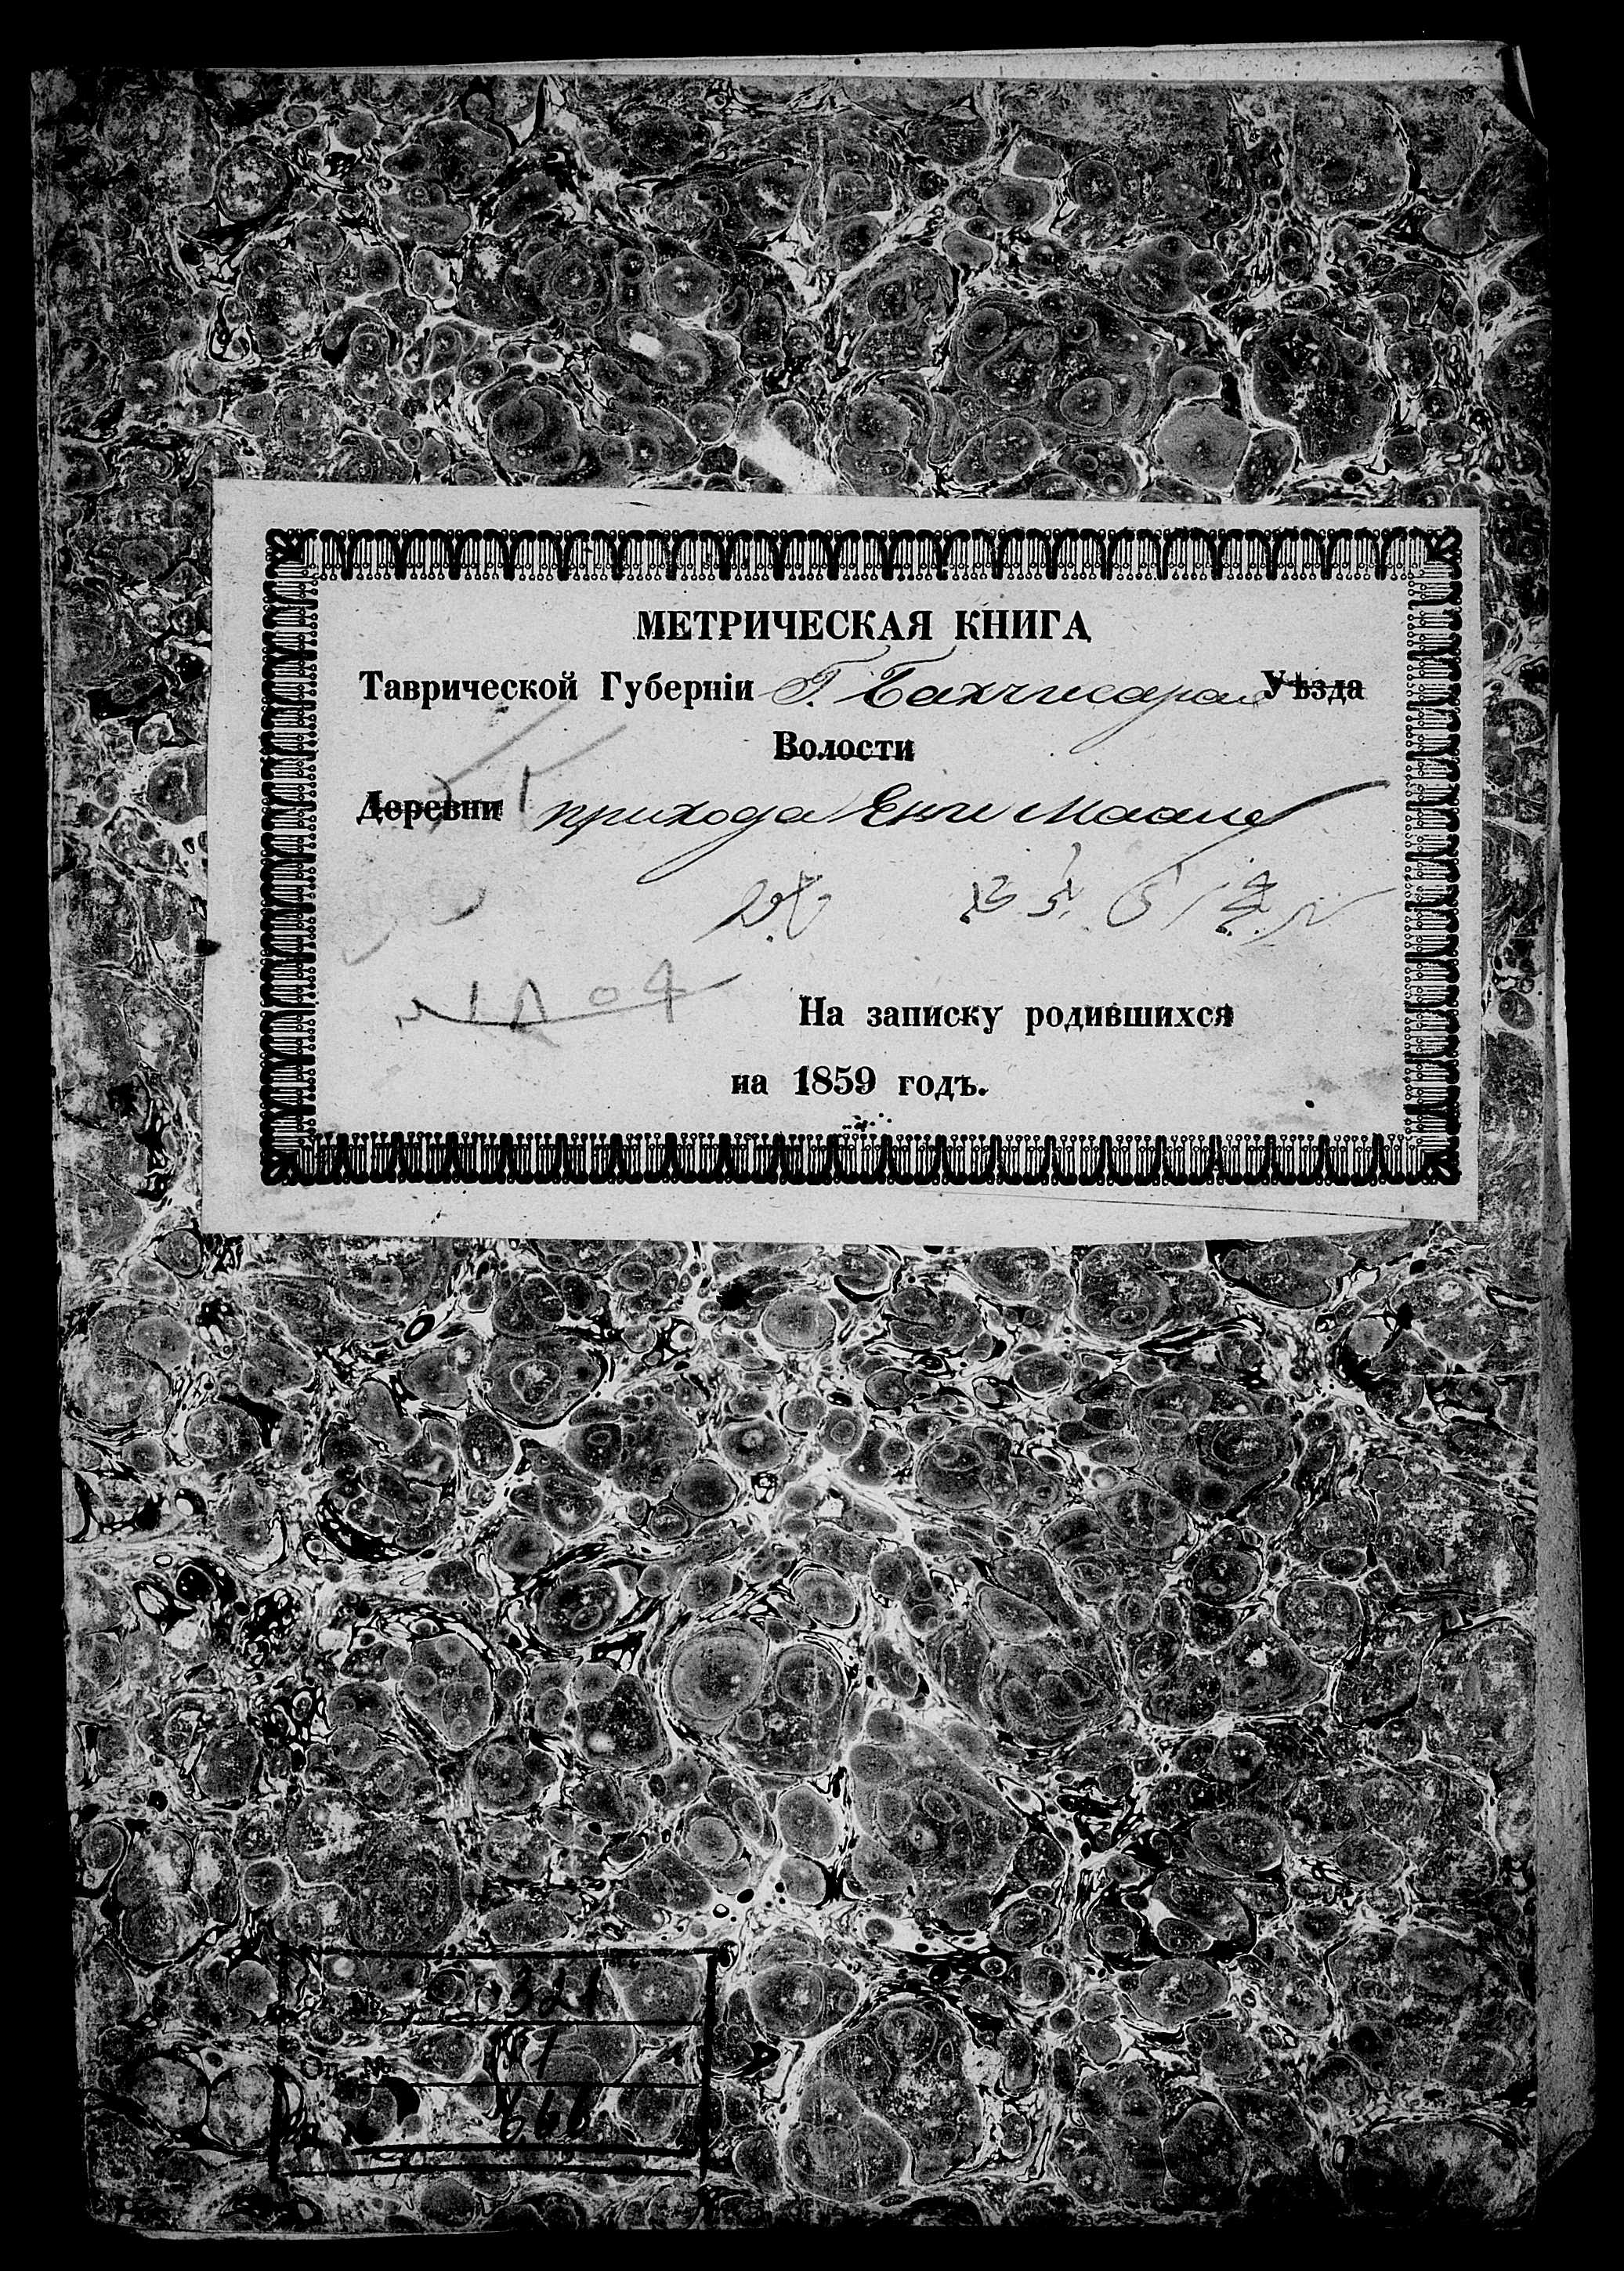 МЕТРИЧЕСКАЯ КНИГА
Таврической Губерніи Г. Бахчисарая Уѣзда
Волости
Деревни прихода Ени Маале
На записку родившихся
на 1859 годъ.
321
Оп. № 1